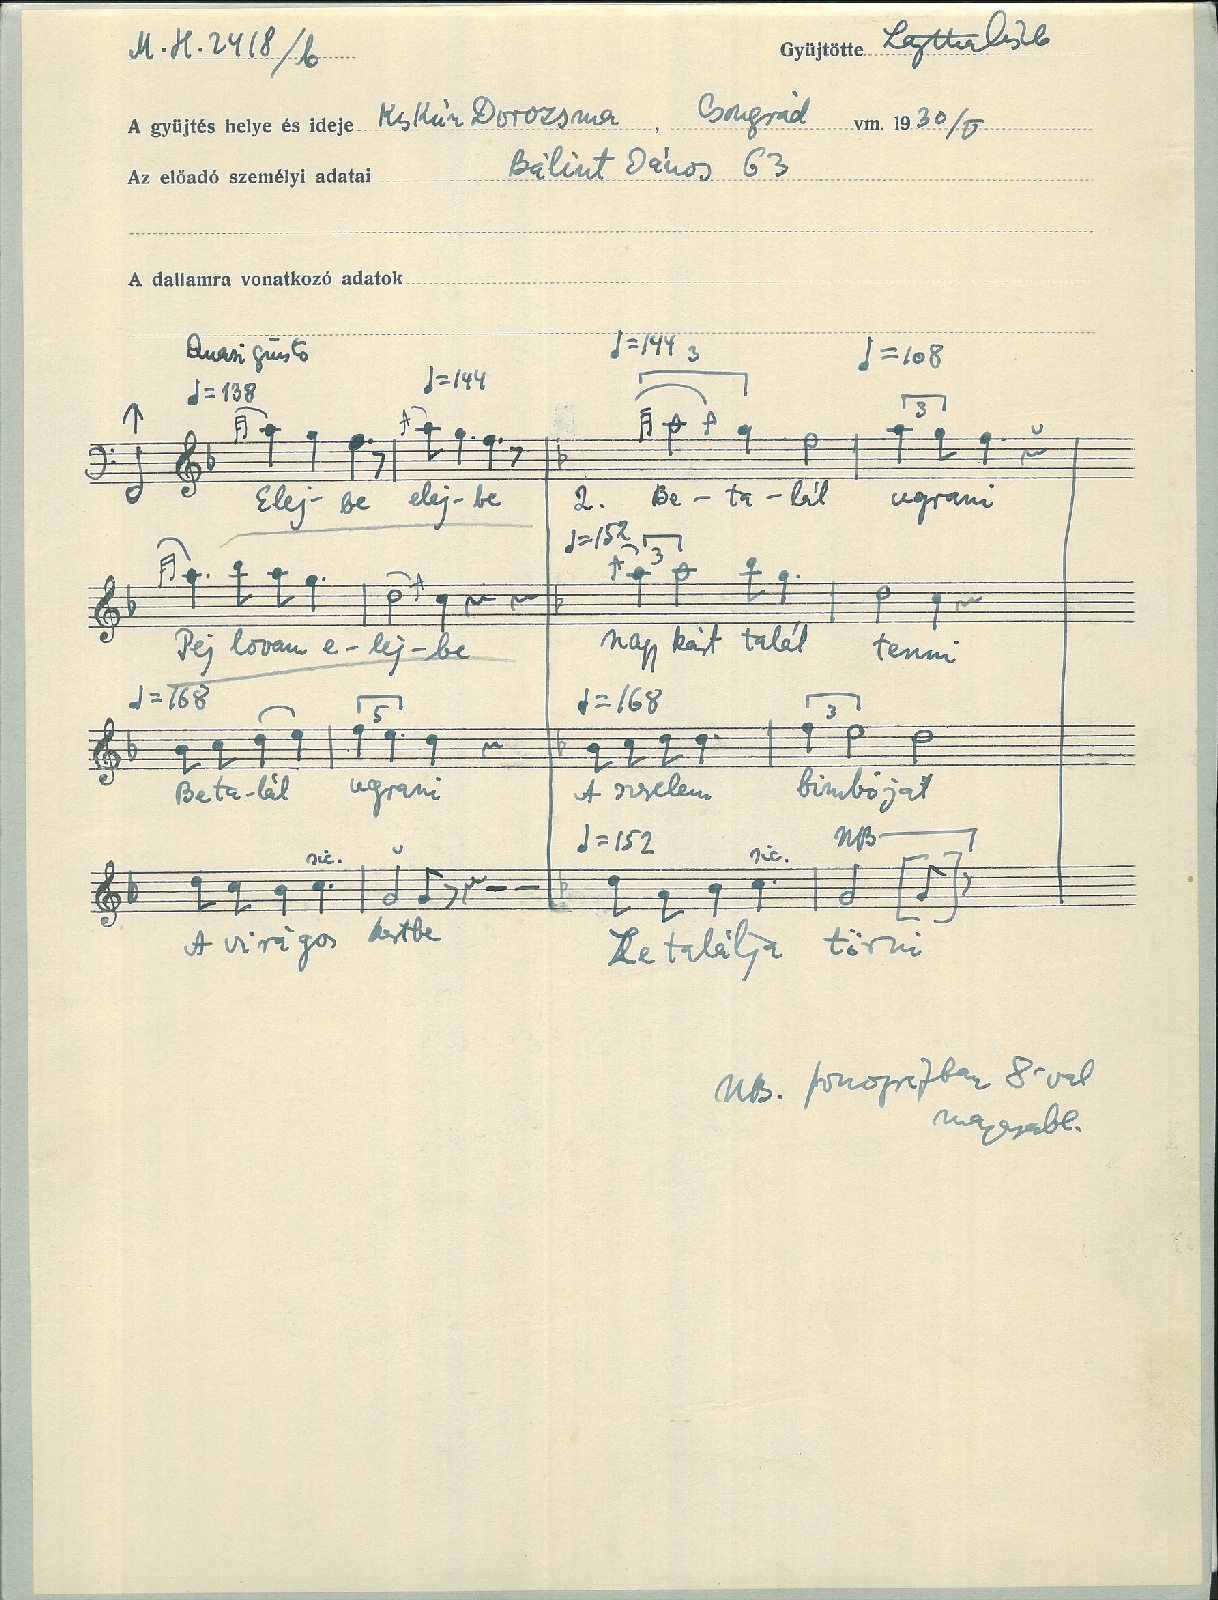 M.H. 2418/b
Gyüjtötte Lajtha László
A gyüjtés helye és ideje KsKún Dorozsma, Csongrád vm. 1930/V
Az előadó személyi adatai Bálint János 63
A dallamra vonatkozó adatok
Quasi giusto
♩=138 ♩=144 ♩=144 3 ♩=108
3
Elej- be elej-be 2. Be-ta-lál ugrani
♩=152 3
Pej lovam e-lej-be nagy kárt talál tenni
♩=168 5 ♩=168 3
Beta-lál ugrani A szerelem bimbóját
sic. ♩=152 sic. NB
A virágos kertbe Le találja törni
NB. fonográfban 8-val
magasabb.